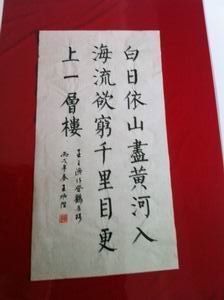 白日依山盡黃河入
海流欲窮千里目更
上一層樓
王之渙作登鶴雀楼
丙戌年春王